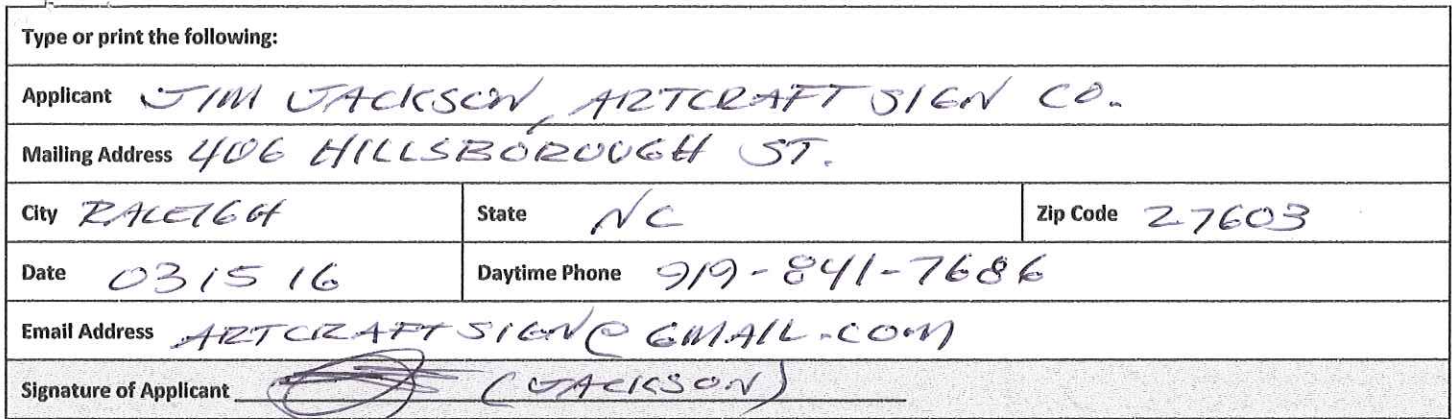 Type or print the following:
Applicant JIM JACKSON, ARTCRAFT SIGN CO.
Mailing Address 406 HILLSBOROUGH ST.
City RALEIGH State NC Zip Code 27603
Date 03 15 16 Daytime Phone 919-841-7686
Email Address ARTCRAFTSIGN@GMAIL.COM
Signature of Applicant (JACKSON)